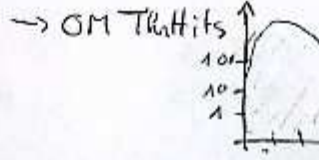 → OM TkrHits
100
10
1